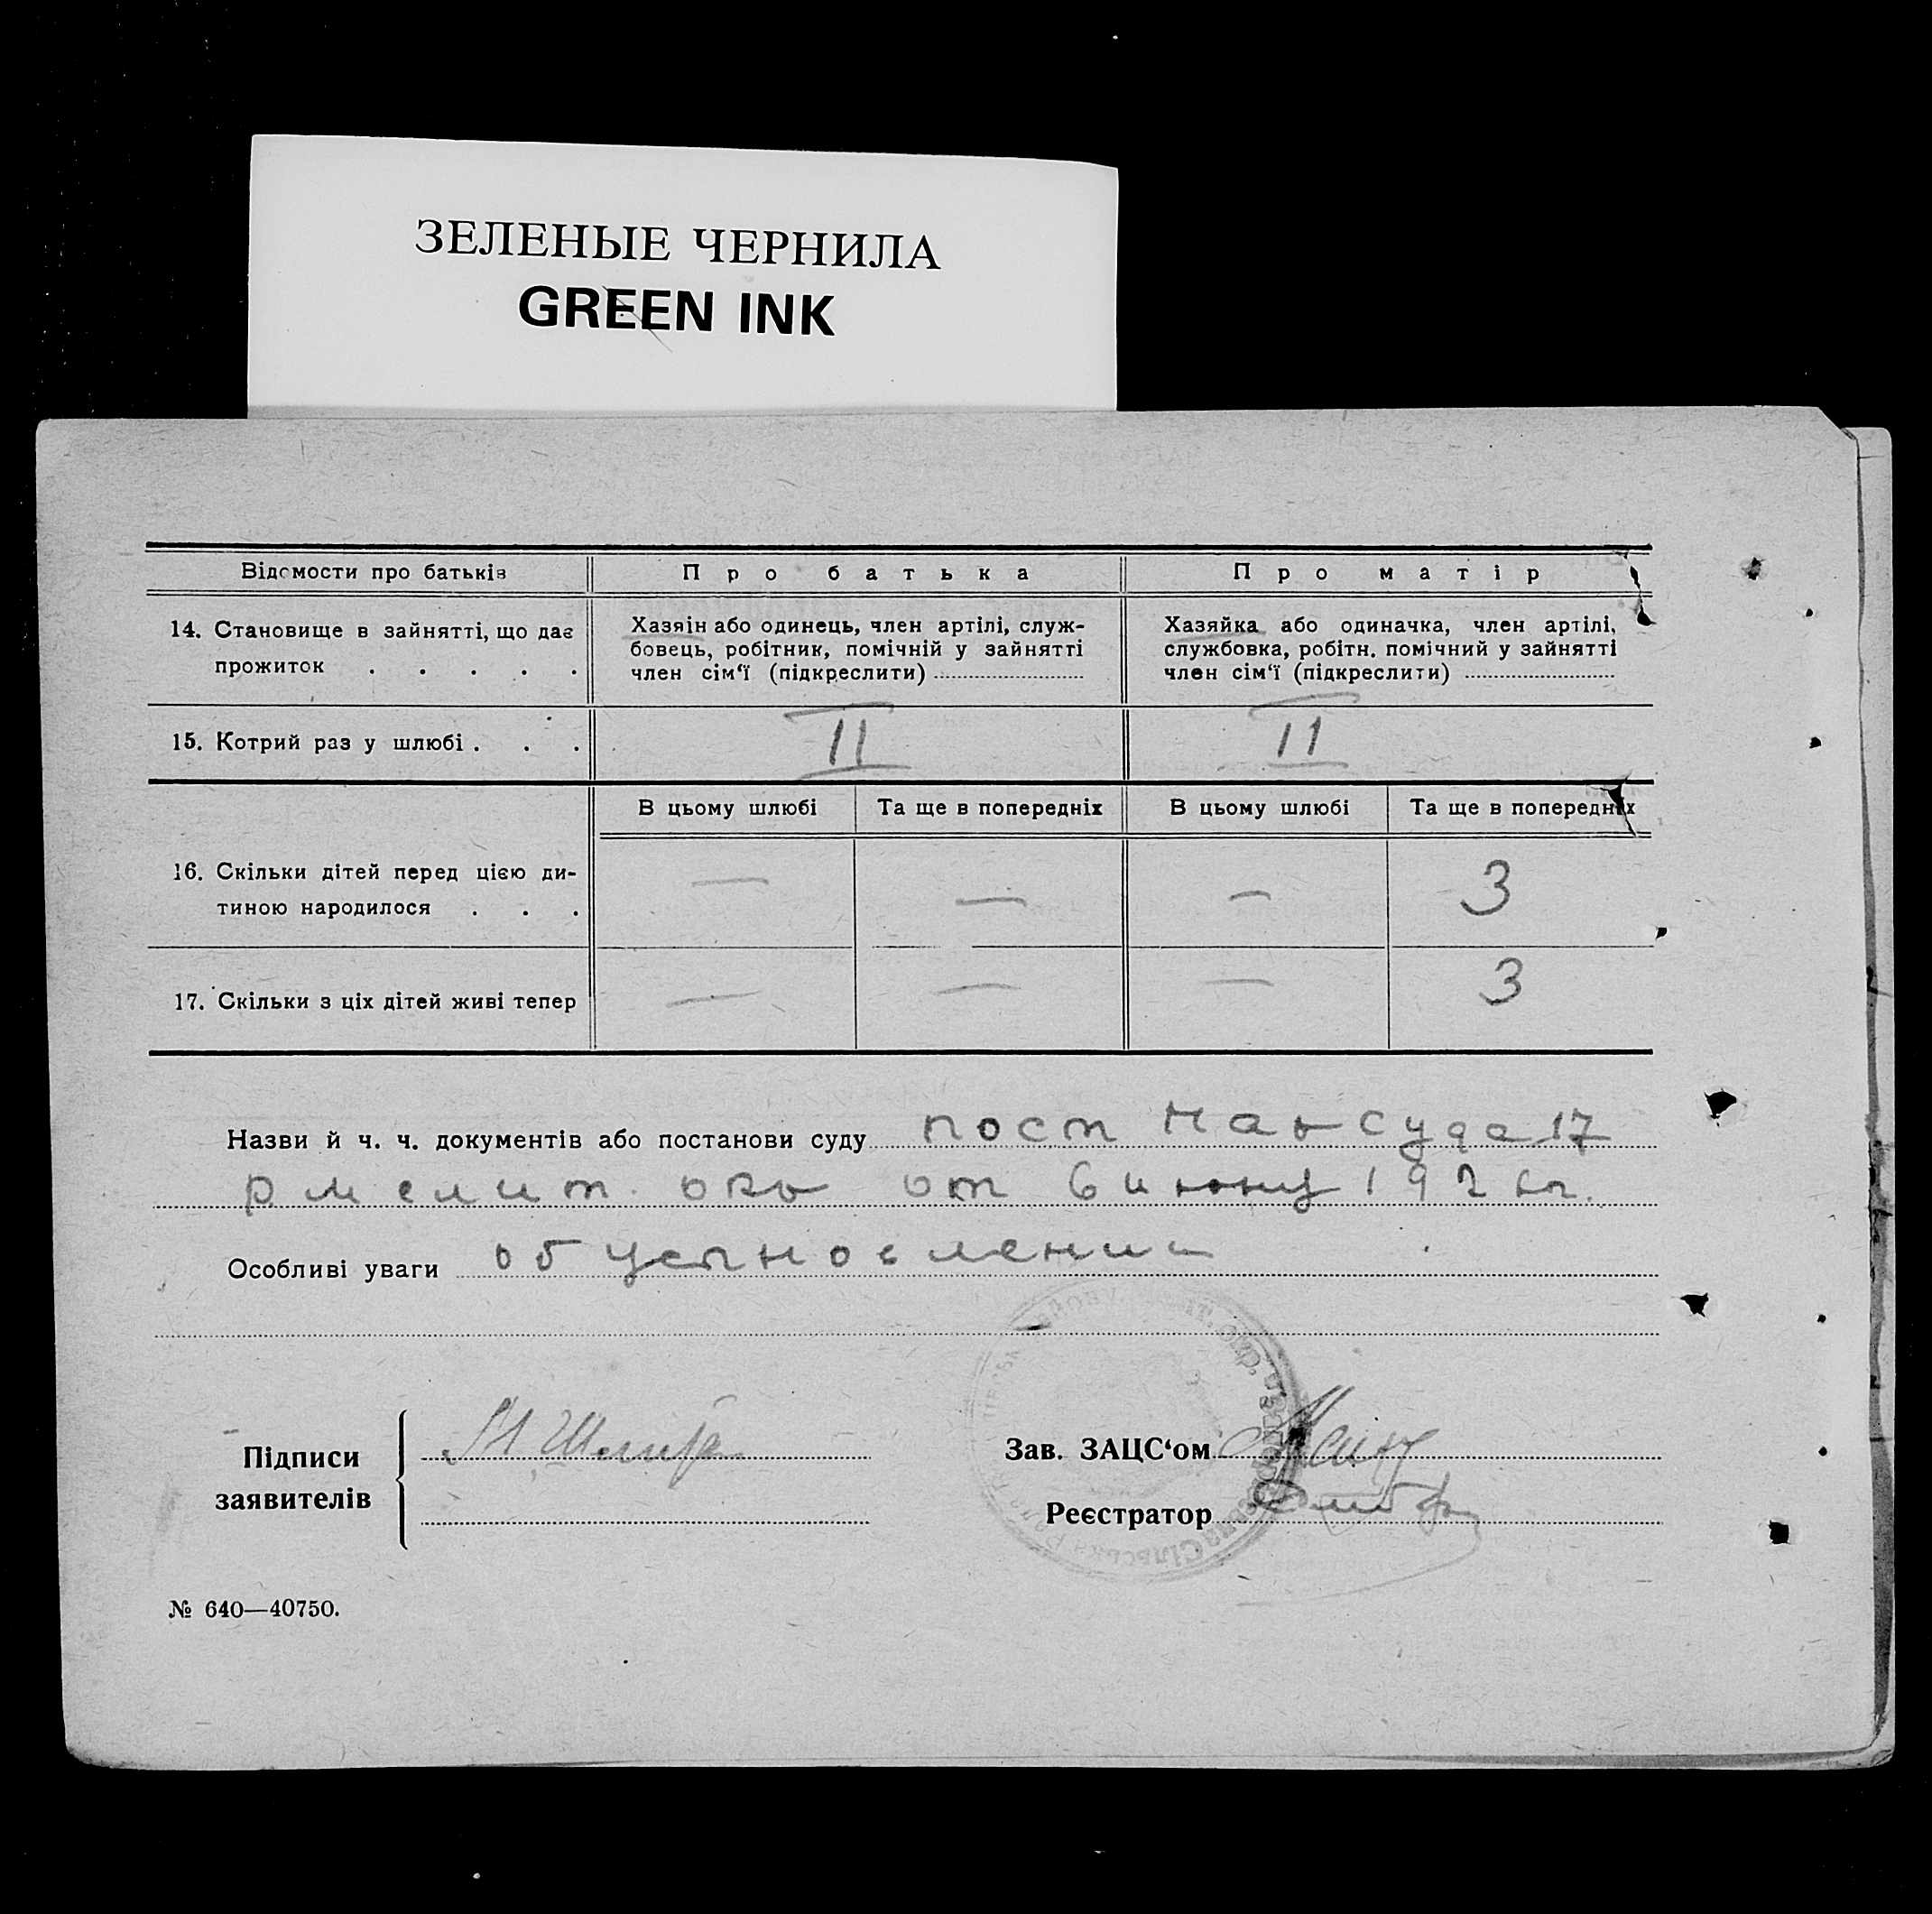 ЗЕЛЕНЫЕ ЧЕРНИЛА
GREEN INK
Відомости про батьків
Про батька
Про матір
14. Становище в зайнятті, що дає
прожиток . . . . .
Хазяін або одинець, член артілі, служ-
бовець, робітник, помічній у зайнятті
член сім‘ї (підкреслити)
Хазяйка або одиначка, член артілі,
службовка, робітн. помічний у зайнятті
член сім‘ї (підкреслити)
15. Котрий раз у шлюбі . . .
II
II
В цьому шлюбі
Та ще в попередніх
В цьому шлюбі
Та ще в попередніх
16. Скільки дітей перед цією ди-
тиною народилося . . .
— — — 3
17. Скільки з ціх дітей живі тепер
— — — 3
Назви й ч. ч. документів або постанови суду пост Нарсуда 17
от 6 июню 192
Особливі уваги об усыновлении
Підписи
заявителів
Зав. ЗАЦС‘ом
Реєстратор
№ 640—40750.